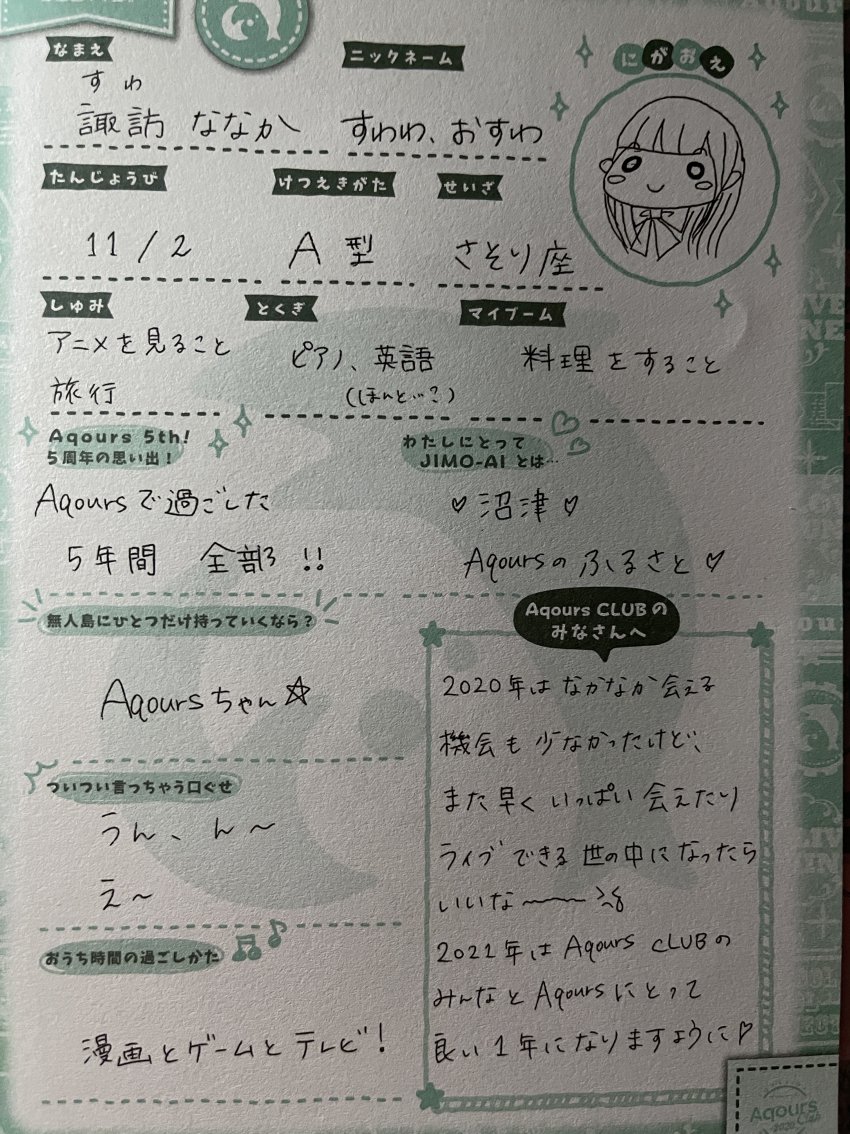 なまえ
すわ
諏訪 ななか
ニックネーム
すわわ、おすわ
にがおえ
たんじょうび
11/2
けつえきがた
A 型
せいざ
さそり座
しゅみ
アニメを見ること
旅行
とくぎ
ピアノ、英語
(ほんと…?)
マイブーム
料理をすること
Aqours 5th!
5周年の思い出!
Aqoursで過ごした
5年間 全部 !!
わたしにとって
JIMO-AI とは…
♡ 沼津 ♡
Aqoursの ふるさと♡
無人島にひとつだけ持っていくなら?
Aqoursちゃん☆
ついつい言っちゃう口ぐせ
うん、ん〜
え〜
おうち時間の過ごしかた
漫画とゲームとテレビ!
Aqours CLUBの
みなさんへ
2020年は なかなか会える
機会も 少なかったけど、
また早く いっぱい 会えたり
ライブできる 世の中に なったら
いいな〜〜
2021年は Aqours CLUBの
みんなと Aqoursにとって
良い1年になりますように♡
Aqours
2020 CLUB